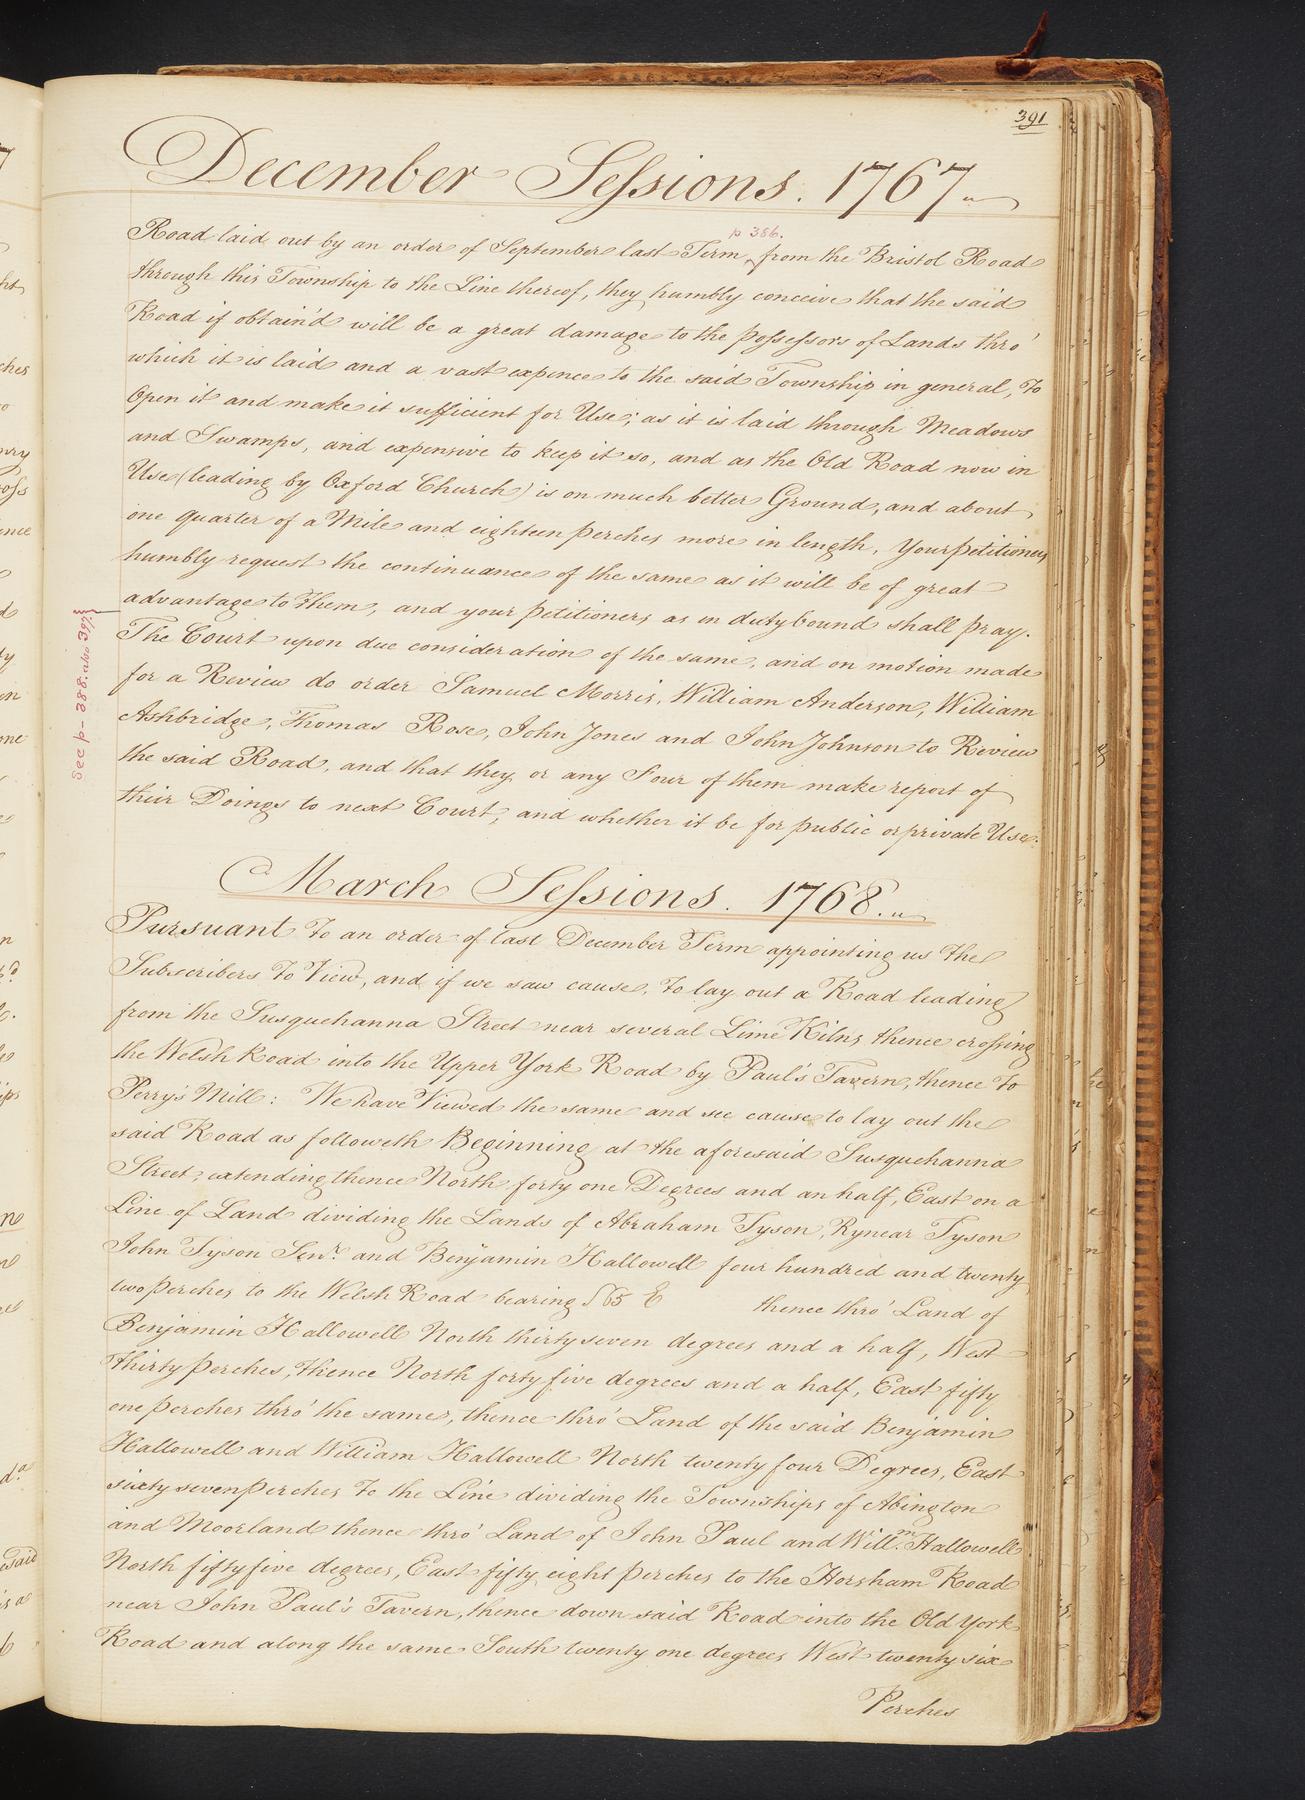 391
December Sessions. 1767.
p 386.
Road laid out by an order of September last Term, from the Bristol Road
through this Township to the Line thereof, they humbly conceive that the said
Road if obtain'd will be a great damage to the possessors of Lands thro'
which it is laid and a vast expence to the said Township in general, to
Open it and make it sufficient for Use; as it is laid through Meadows
and Swamps, and expensive to keep it so, and as the Old Road now in
Use (leading by Oxford Church) is on much better Ground, and about
one quarter of a Mile and eighteen perches more in length, Your petitioners
humbly request the continuance of the same as it will be of great
advantage to them, and your petitioners as in duty bound shall pray.
See p- 388. also 397.
The Court upon due consideration of the same, and on motion made
for a Review do order Samuel Morris, William Anderson, William
Ashbridge, Thomas Rose, John Jones and John Johnson to Review
the said Road, and that they or any Four of them make report of
their Doings to next Court, and whether it be for public or private Use.
March Sessions. 1768.
Pursuant to an order of last December Term appointing us the
Subscribers to View, and if we saw cause, to lay out a Road leading
from the Susquehanna Street near several Lime Kilns thence crossing
the Welsh Road into the Upper York Road by Paul's Tavern, thence to
Perry's Mill: We have Viewed the same and see cause to lay out the
said Road as followeth Beginning at the aforesaid Susquehanna
Street, extending thence North forty one Degrees and an half, East on a
Line of Land dividing the Lands of Abraham Tyson, Rynear Tyson
John Tyson Senr. and Benjamin Hallowell four hundred and twenty
two perches to the Welsh Road bearing S 65 E thence thro' Land of
Benjamin Hallowell North thirty seven degrees and a half, West
thirty perches, thence North forty five degrees and a half, East fifty
one perches thro' the same, thence thro' Land of the said Benjamin
Hallowell and William Hallowell North twenty four Degrees, East
sixty seven perches to the Line dividing the Townships of Abington
and Moorland thence thro' Land of John Paul and Willm. Hallowell
North fifty five degrees, East fifty eight perches to the Horsham Road
near John Paul's Tavern, thence down said Road into the Old York
Road and along the same South twenty one degrees West twenty six
Perches